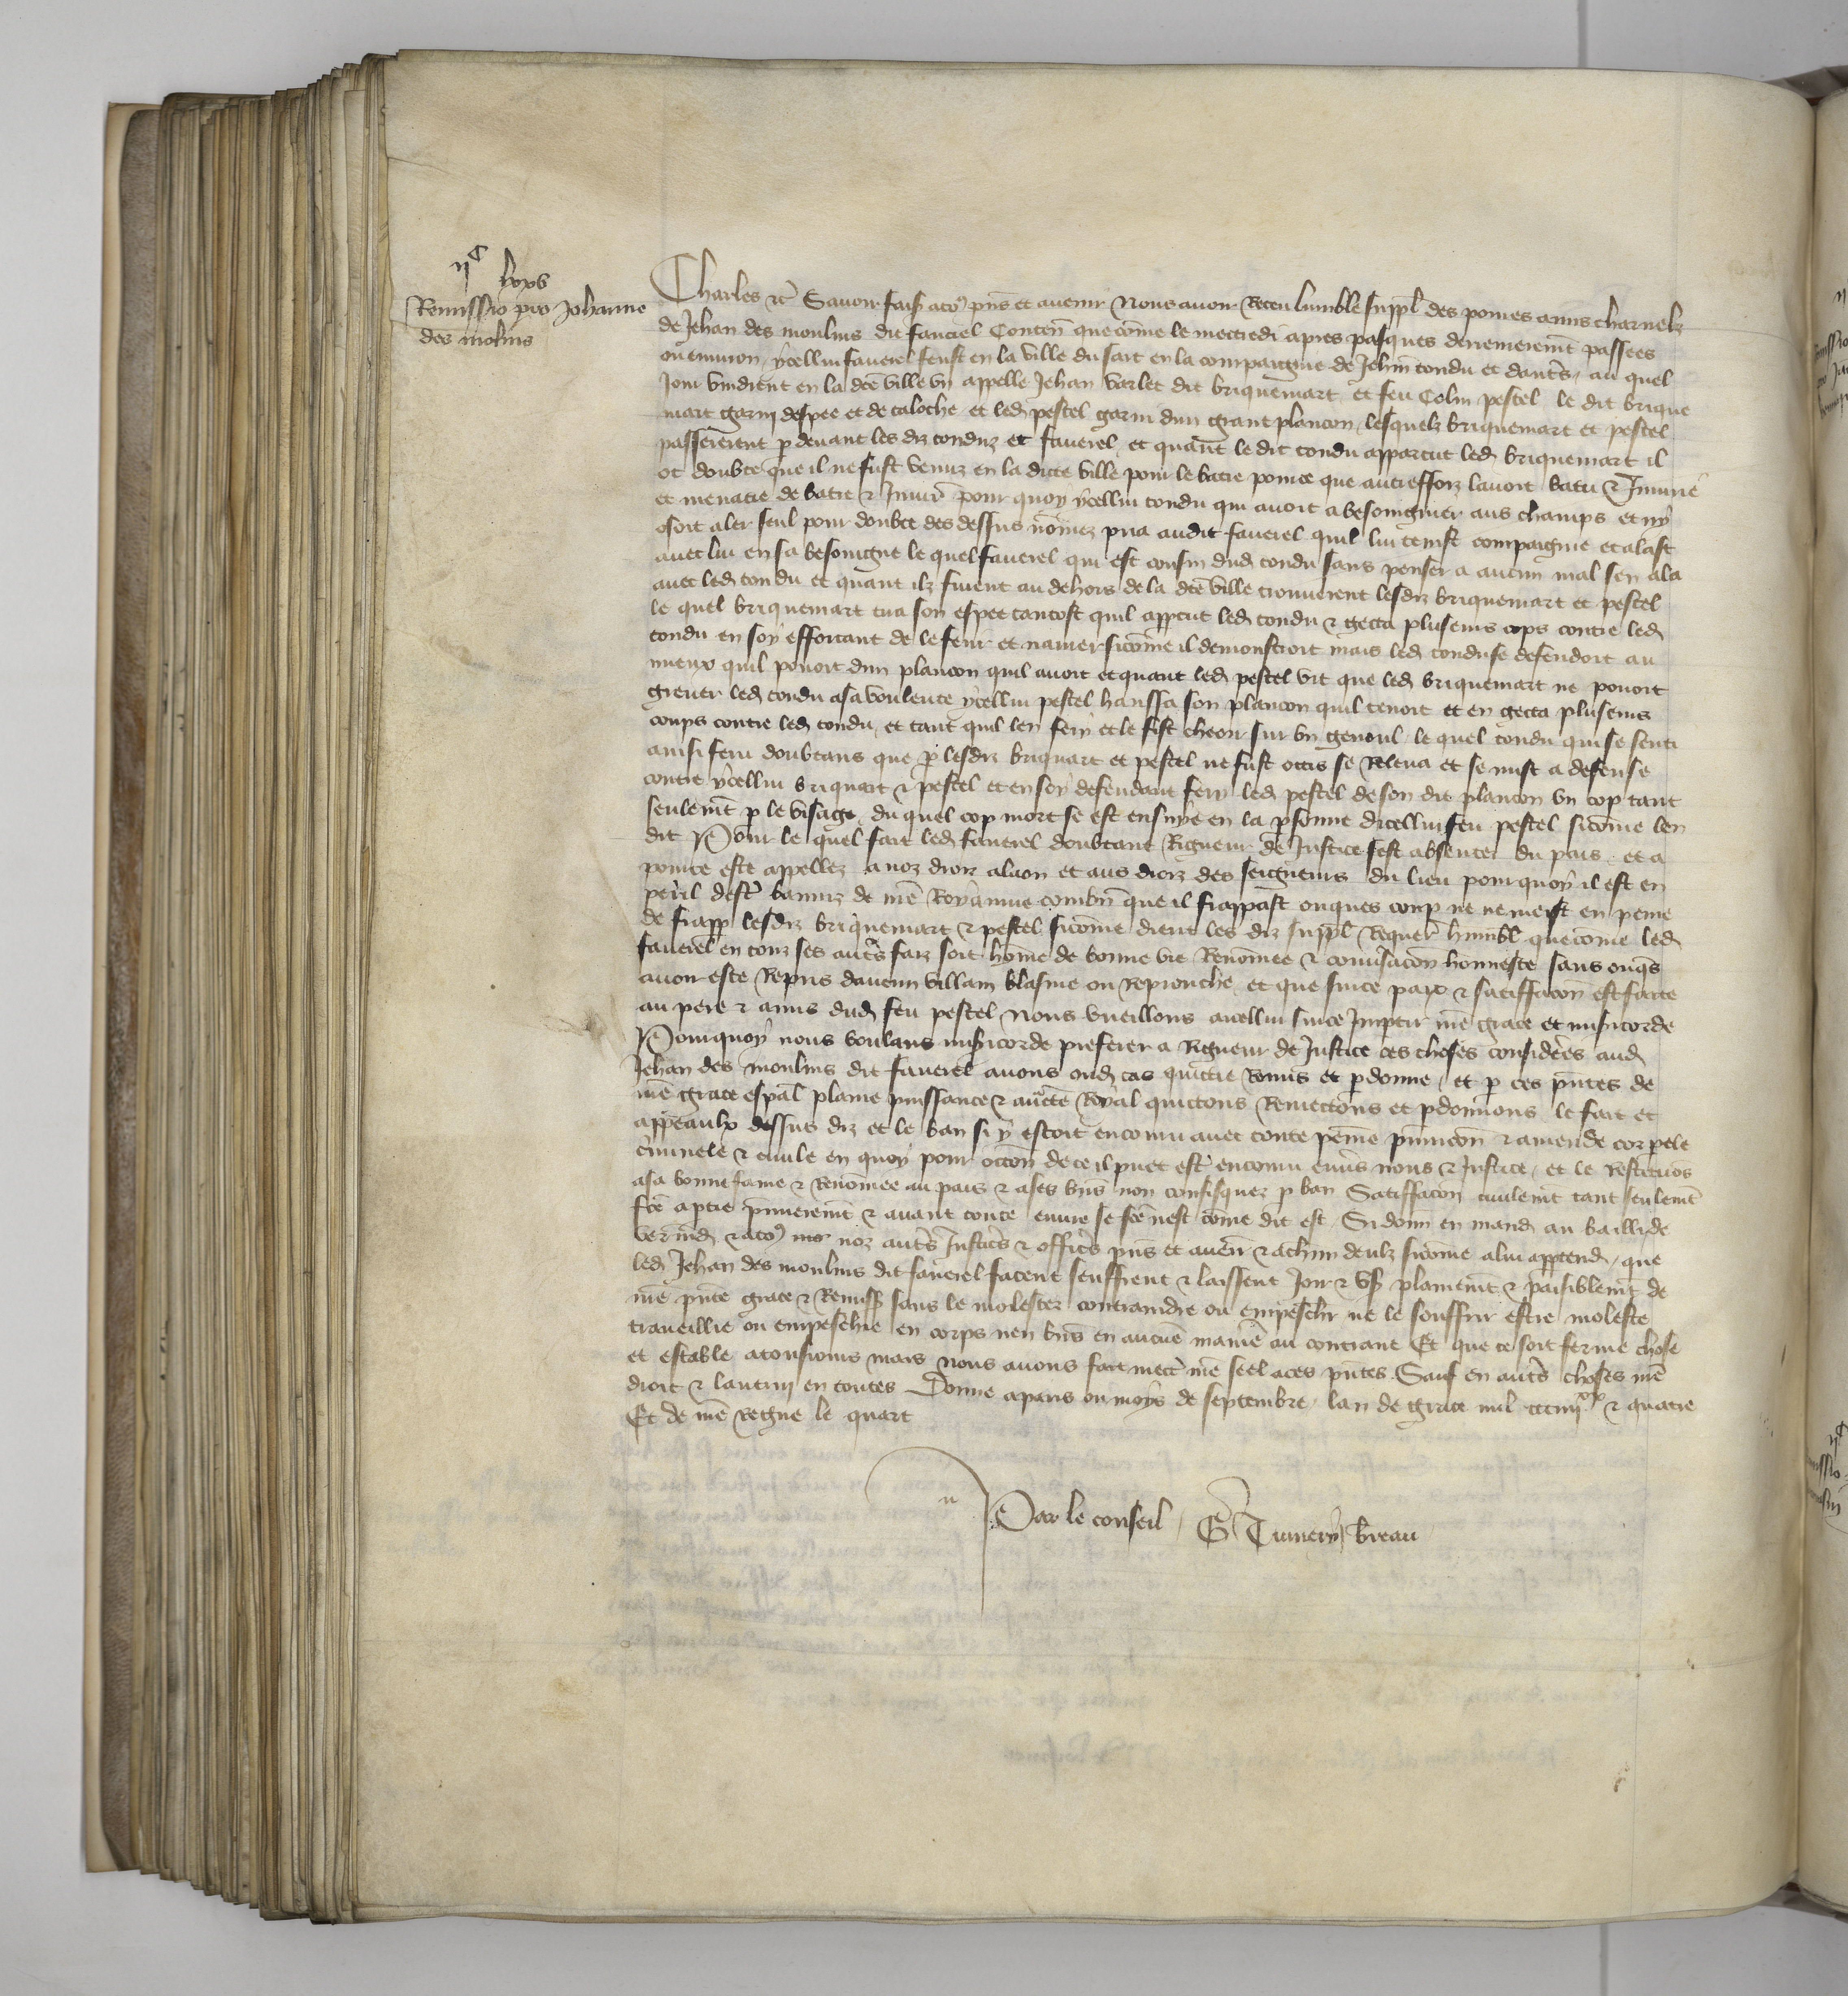 ijᶜ
lxxv
Remissio pro Johanne
des molins
Charles etc̄ Savoir faisꝰ a toꝰ pn̄s et avenir Nous avoir Receu lumble supp̄l des povres amis charnelz
de Jehan des moulins dit faverel Conten̄ que cōme le mercredi apres pasques derrenierem̄t passees
ou environ ycellui faverel feust en la ville du sart en la compaignie de Jehan condu et dautr̄s, au quel
Jour vindrent en la dc̄e ville un appelle Jehan varlet dit briquemart et feu Colin pestel le dit brique
mart garni despee et de taloche et led̄ pestel garni dun grant plancon, lesquelz briquemart et pestel
passererent p̱ devant les diz conduz et faverel, et quant le dit condu apparcut led̄ briquemart il
ot doubte que il ne fust venuz en la dicte ville pour le batre pource que autreffoiz lavoit batu & Jniurie
et menacie de batre & Jniur̄ pour quoy ycellui condu qui avoit a besoingnier aus champs et ny
osoit aler seul pour doubte des dessus nōmez pria audit faverel quil lui tenist compaignie et alast
avec lui en sa besoingne le quel faverel qui est cousin dud̄ condu sans penser a aucun mal sen ala
avec led̄ condu et quant ilz furent au dehors de la dc̄e ville trouverent lesdiz briquemart et pestel
le quel briquemart tira son espee tantost quil app̱cut led̄ condu & gecta plusieurs cops contre led̄
condu en soy efforcant de le ferir et navrer sicōme il demonstroit mais led̄ condu se defendoit au
mieux quil povoit dun plancon quil avoit et quant led̄ pestel vit que led̄ briquemart ne povoit
grever led̄ condu a sa voulente ycellui pestel haussa son plancon quil tenoit et en gecta plusieurs
coups contre led̄ condu, et tant quil len feri et le fist cheoir sur un genoul, le quel condu qui se senti
ainsi feru doubtans que p̱ lesdiz briquart et pestel ne fust occis se Releva et se mist a defense
contre ycellui briquart & pestel et en soy defendant feri led̄ pestel de son dit plancon un cop tant
seulem̄t p̱ le visage, du quel cop mort se est ensuye en la p̱sonne dicellui feu pestel sicōme len
dit Pour le quel fait led̄ faverel doubtant Rigueur de Justice sest absentez du pais et a
pource este appellez a noz droiz a laon et aus droiz des seigneurs du lieu pour quoy il est en
peril destr̄ banniz de nr̄e Royaume combn̄ que il frappast onques coup ne ne meist en peine
de frapp̄ lesdiz briquemart & pestel sicōme dient les diz supp̄l Requer̄ humbl̄ que cōme led̄
faverel en touz ses autr̄s faiz soit hōme de bonne vie Renōmee & convsacōn honneste sans onq̄s
avoir este Repris daucun villain blasme ou Reprouche et que sur ce paix & satiffacōn est faicte
au pere & amis dud̄ feu pestel Nous vueillons a icellui sur ce Jmpartir nr̄e grace et misicorde
Pourquoy nous voulans misicorde preferer a Rigueur de Justice ces choses considerees aud̄
Jehan des moulins dit faverel avons oud̄ cas quictie Remis et p̱donne, et p̱ ces p̄ntes de
nr̄e grace esp̄al plaine puissance & auct̄e Royal quictons Remectons et p̱donnons le fait et
appeaulx dessus diz et le ban si y estoit encouru avec toute peine pinicōn & amende corp̱ele
c̄minele & civile en quoy pour occōn de ce il puet estr̄ encouru envs̄ nous & Justice, et le Restituōs
a sa bonne fame & Renōmee au pais & a ses bn̄s non confisquez p̱ ban Satiffacōn civilem̄t tant seulem̄t
fc̄e a p̱tie premierem̄t & avant toute euvre se fc̄e nest cōme dit est, Si donn̄ en mand̄ au bailli de
verm̄d̄ & a toꝰ noz autr̄s Justic̄s & offic̄s pn̄s et aven̄ & a ch̄un deulz sicōme a lui app̱tend̄, que
led̄ Jehan des moulins dit faverel facent seuffrent & laissent Joir & us̄ plainem̄t & paisiblem̄t de
nr̄e p̄nte grace & Remiss̄ sans le molester contraindre ou empeschr̄ ne le souffrir estre moleste
traveillie ou empeschie en corps nen bn̄s en aucune manie͛ au contraire Et que ce soit ferme chose
et estable a tousiours mais nous avons fait mectr̄ nr̄e seel a ces p̄ntes. Sauf en autr̄s choses nr̄e
droit & lautrui en toutes Donne a paris ou moys de septembre, lan de grace mil ccciiijˣˣ & quatre
Et de nr̄e Regne le quart
Par le conseil,